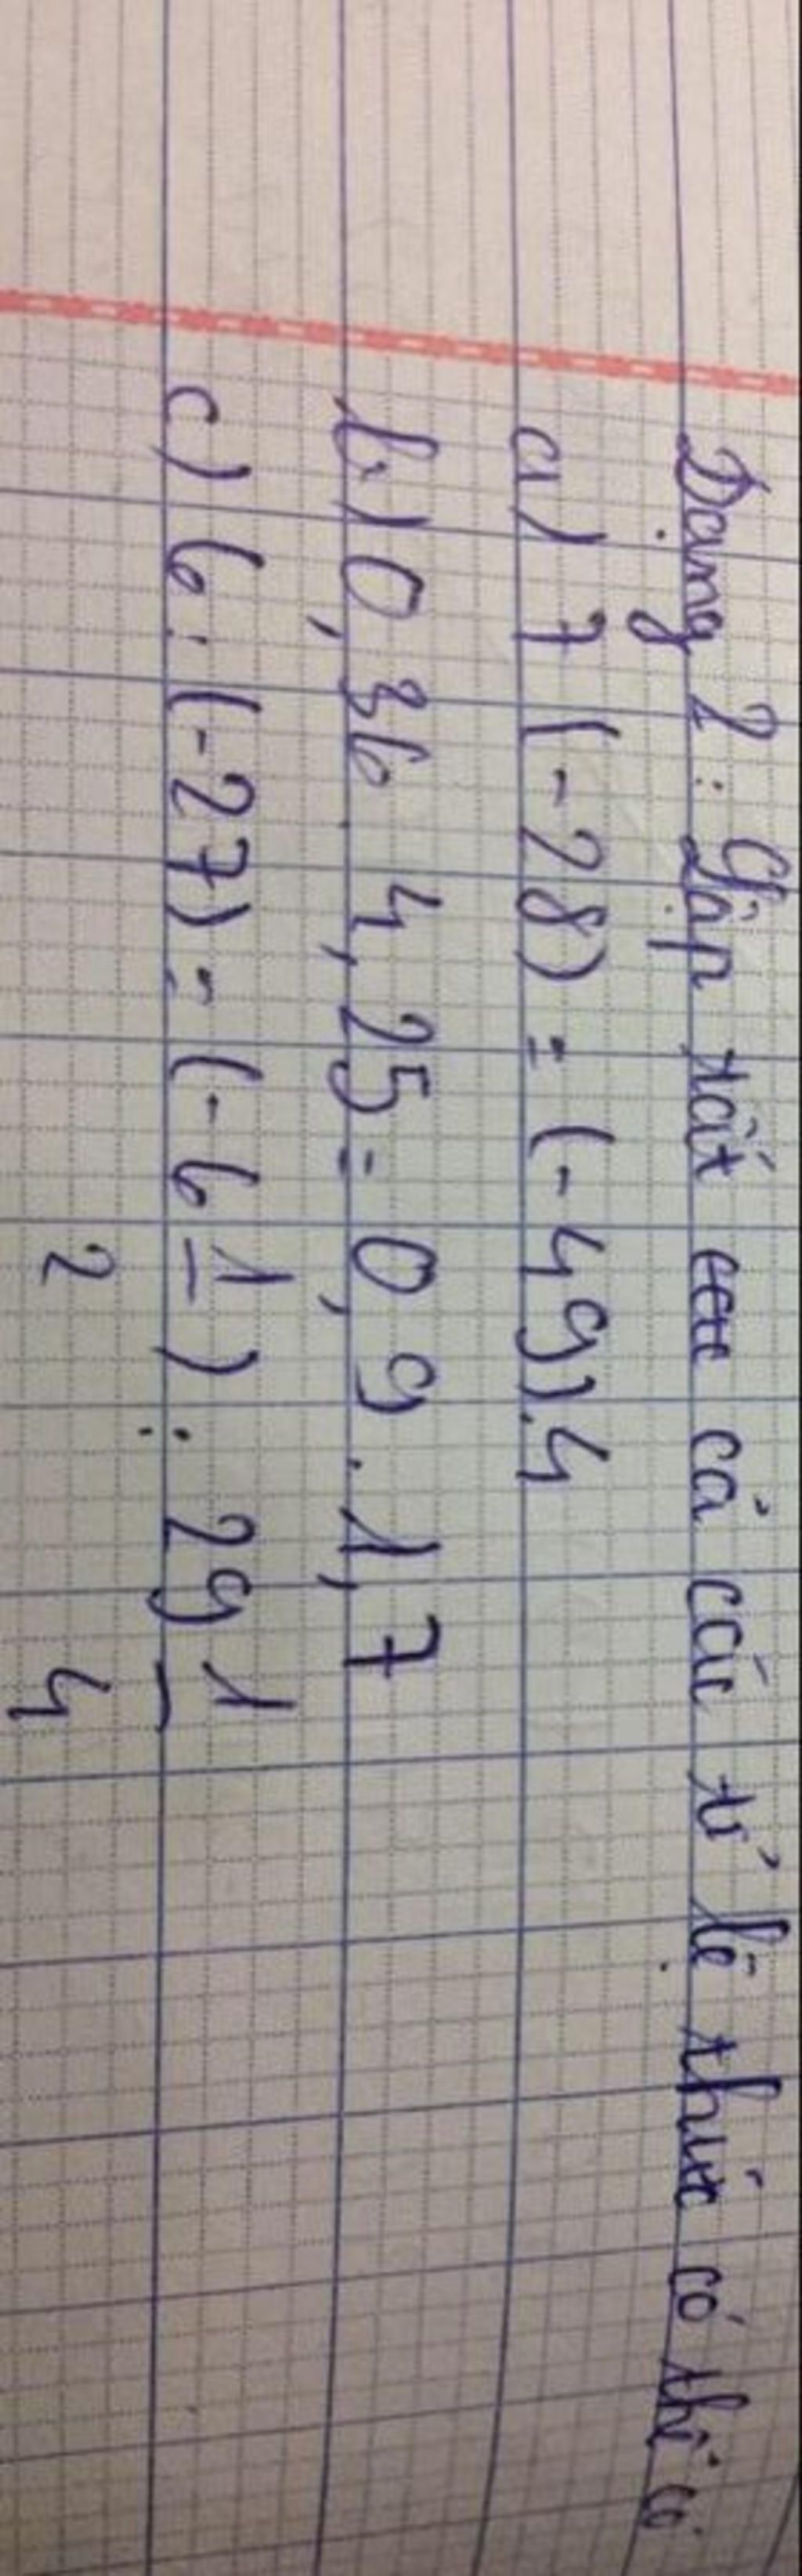 Dạng 2: Lập tất cả các tỉ lệ thức có thể có
a) 7(-28) = (-49).4
b) 0,36.4,25 = 0,9.1,7
c) 6:(-27) = (-6 1/2) : 29 1/4